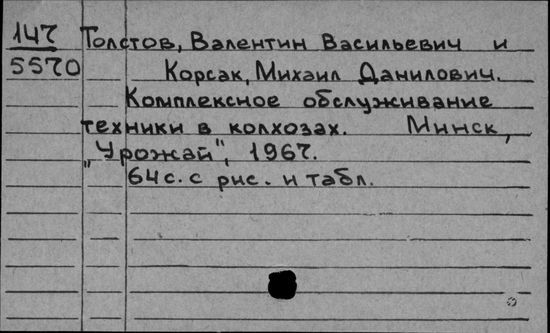 147 Толстов, Валентин Васильевич и
5570 Корсак, Михаил Данилович.
Комплексное обслуживание
техники в колхозах. Минск,
„Урожай", 1967.
64 с. с рис. и табл.